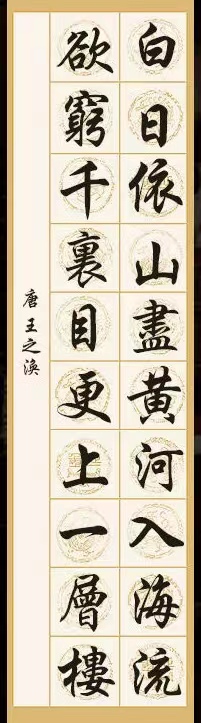 白日依山盡黄河入海流
欲窮千裏目更上一層樓
唐王之渙